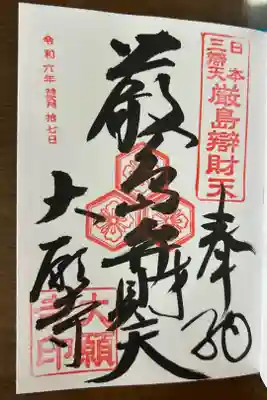 日本
三辯天
厳島辯財天
奉納
厳島弁財天
大願寺
大願
寺印
令和六年 拾七日